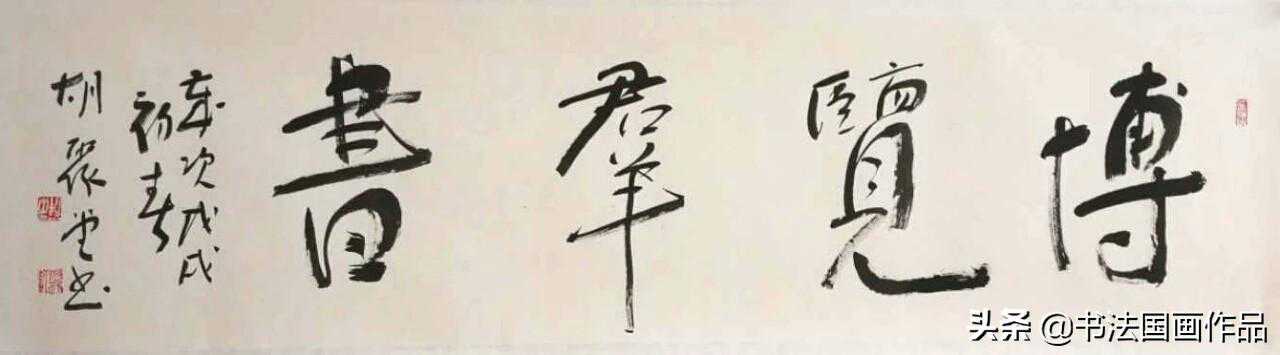 博覽羣書
歲次戊戌
初春
胡聚堂书
头条 @书法国画作品